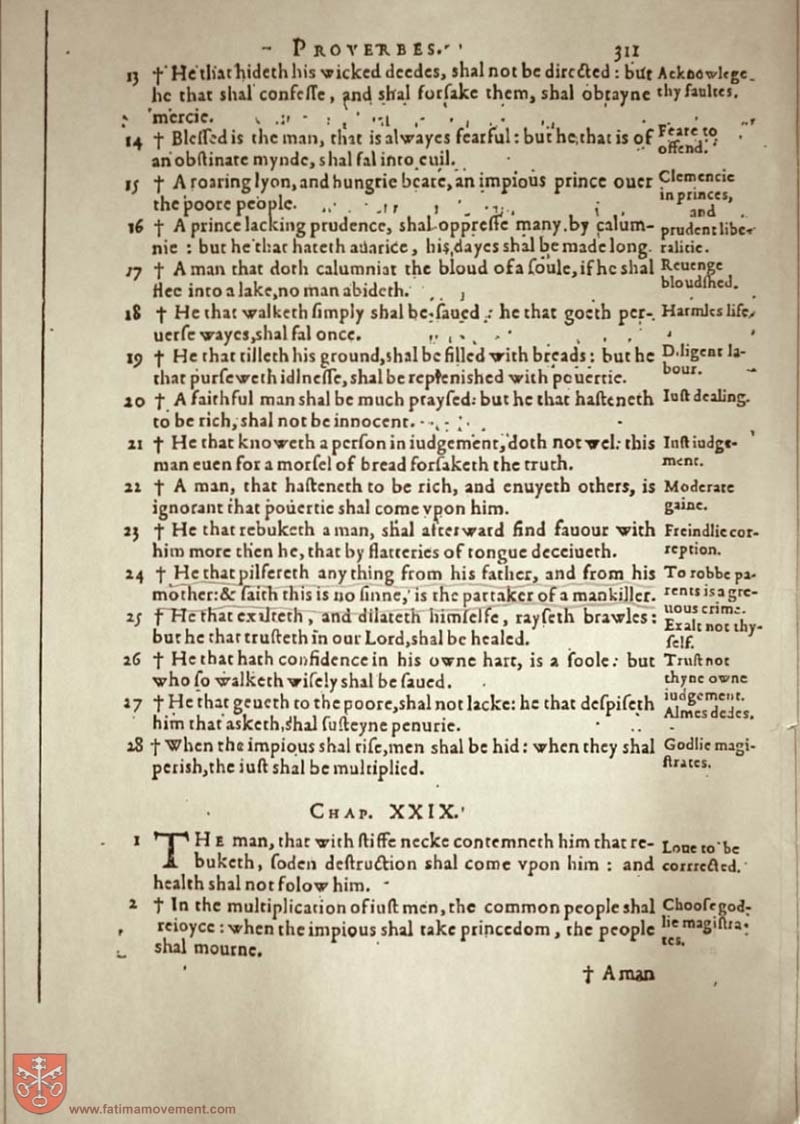 PROVERBES. 311
13 † He that hideth his wicked deedes, shal not be directed: but
he that shal confesse, and shal forsake them, shal obtayne
mercie.
Acknowlege
thy faultes.
14 † Blessed is the man, that is alwayes fearful: but he, that is of
an obstinate mynde, shal fal into euil.
Feare to
offend.
15 † A roaring lyon, and hungrie beare, an impious prince ouer
the poore people.
Clemencie
in princes,
and
prudent libe-
ralitie.
16 † A prince lacking prudence, shal oppresse many by calum-
nie : but he that hateth auarice, his dayes shal be made long.
17 † A man that doth calumniat the bloud of a soule, if he shal
flee into a lake, no man abideth.
Reuenge
bloudshed.
18 † He that walketh simply shal be saued : he that goeth per-
uerse wayes, shal fal once.
Harmles life.
19 † He that tilleth his ground, shal be filled with breads: but he
that purseweth idlnesse, shal be replenished with pouertie.
Diligent la-
bour.
20 † A faithful man shal be much praysed: but he that hasteneth
to be rich, shal not be innocent.
Iust dealing.
21 † He that knoweth a person in iudgement, doth not wel: this
man euen for a morsel of bread forsaketh the truth.
Iust iudge-
ment.
22 † A man, that hasteneth to be rich, and enuyeth others, is
ignorant that pouertie shal come vpon him.
Moderate
gaine.
23 † He that rebuketh a man, shal afterward find fauour with
him more then he, that by flatteries of tongue deceiueth.
Freindlie cor-
reption.
24 † He that pilfereth any thing from his father, and from his
mother: & saith this is no sinne, is the partaker of a mankiller.
To robbe pa-
rents is a gre-
uous crime.
25 † He that exalteth, and dilateth himselfe, rayseth brawles:
but he that trusteth in our Lord, shal be healed.
Exalt not thy-
self.
26 † He that hath confidence in his owne hart, is a foole: but
who so walketh wisely shal be saued.
Trust not
thyne owne
iudgement.
27 † He that geueth to the poore, shal not lacke: he that despiseth
him that asketh, shal susteyne penurie.
Almes dedes.
28 † When the impious shal rise, men shal be hid: when they shal
perish, the iust shal be multiplied.
Godlie magi-
strates.
CHAP. XXIX.
1 THE man, that with stiffe necke contemneth him that re-
buketh, soden destruction shal come vpon him : and
health shal not folow him.
Loue to be
corrected.
2 † In the multiplication of iust men, the common people shal
reioyce : when the impious shal take princedom, the people
shal mourne.
Choose god-
lie magistra-
tes.
† A man
www.fatimamovement.com